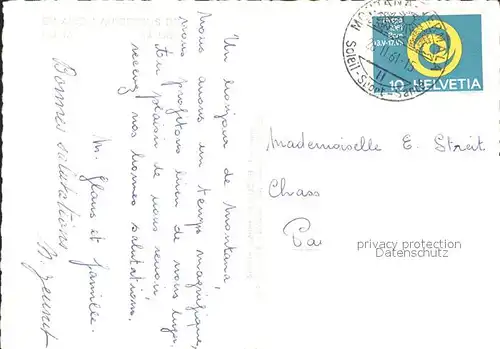 Un bonjour de Montana,
Nous avons un temps magnifique,
nous profitons bien de nous
Au plaisir de vous revoir,
recevez nos bonnes salutations.
M. et famille.
Bonnes salutations
MONTANA
61-15
Soleil-Sport-Santé
Europa
10
HELVETIA
Mademoiselle E. Streit
Chass
privacy protection
Datenschutz